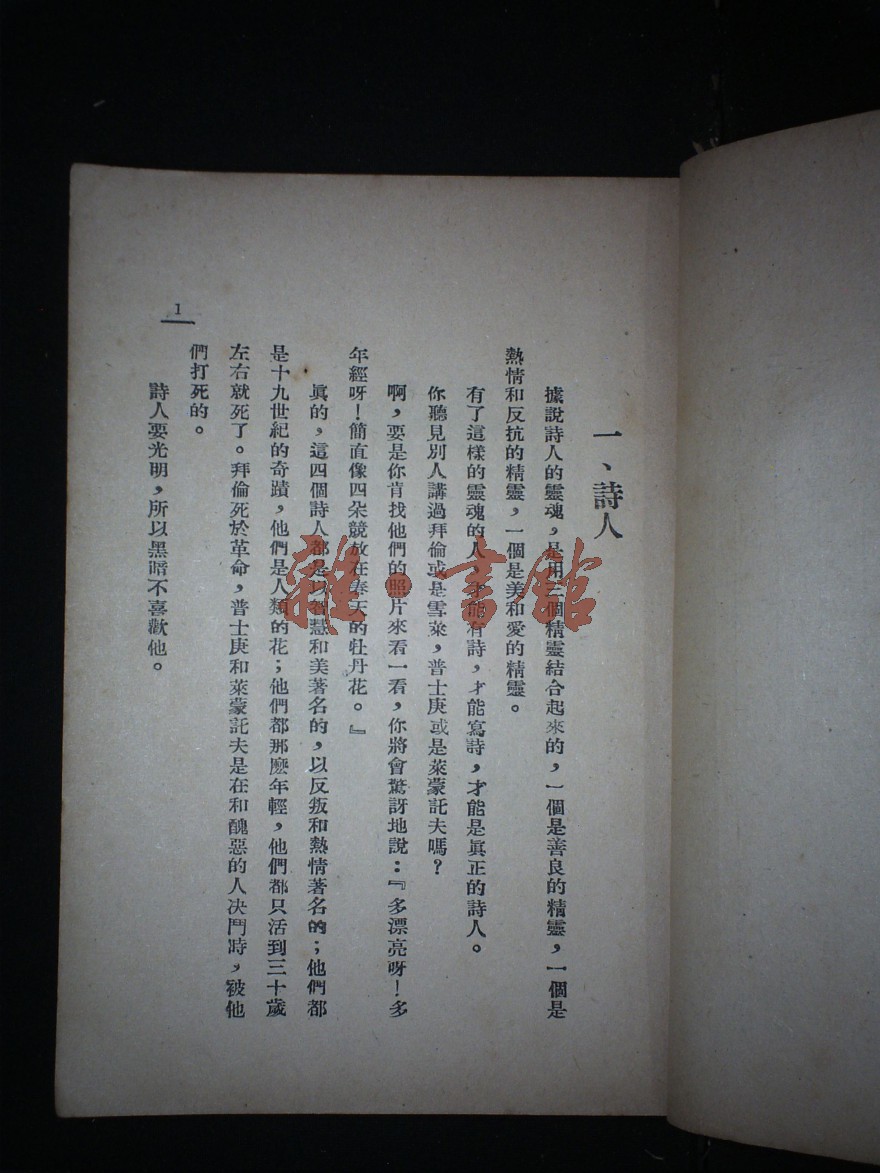 一、詩人
據說詩人的靈魂，是用三個精靈結合起來的，一個是善良的精靈，一個是
熱情和反抗的精靈，一個是美和愛的精靈。
有了這樣的靈魂的人，才能有詩，才能寫詩，才能是眞正的詩人。
你聽見別人講過拜倫或是雪萊，普士庚或是萊蒙託夫嗎？
啊，要是你肯找他們的照片來看一看，你將會驚訝地說：『多漂亮呀！多
年經呀！簡直像四朵競放在春天的牡丹花。』
眞的，這四個詩人都是以智慧和美著名的，以反叛和熱情著名的；他們都
是十九世紀的奇蹟，他們是人類的花；他們都那麽年輕，他們都只活到三十歲
左右就死了。拜倫死於革命，普士庚和萊蒙託夫是在和醜惡的人決鬥時，被他
們打死的。
詩人要光明，所以黑暗不喜歡他。
1
雜·書館